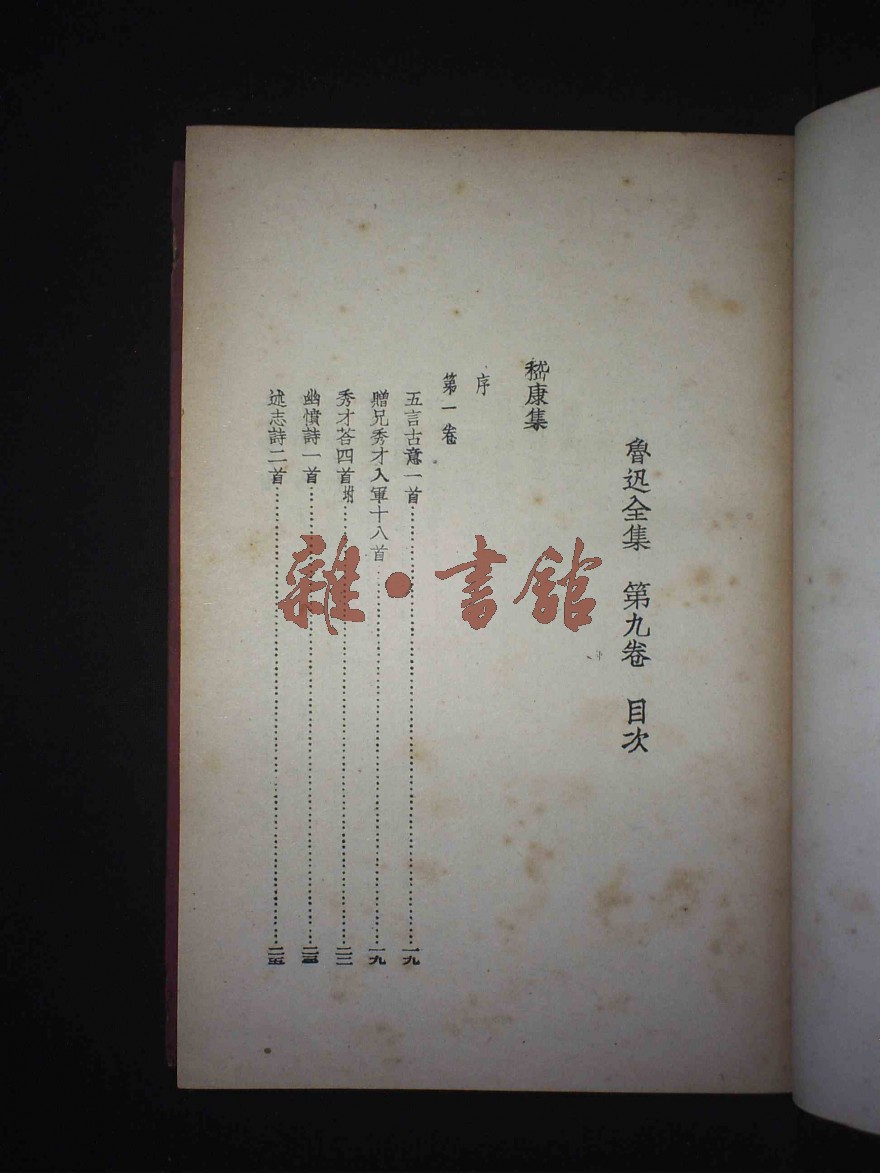 魯迅全集　第九卷　目次
嵇康集
序
第一卷
五言古意一首……一九
贈兄秀才入軍十八首……一九
秀才荅四首附……二二
幽憤詩一首……二三
述志詩二首……二五
雜·書館